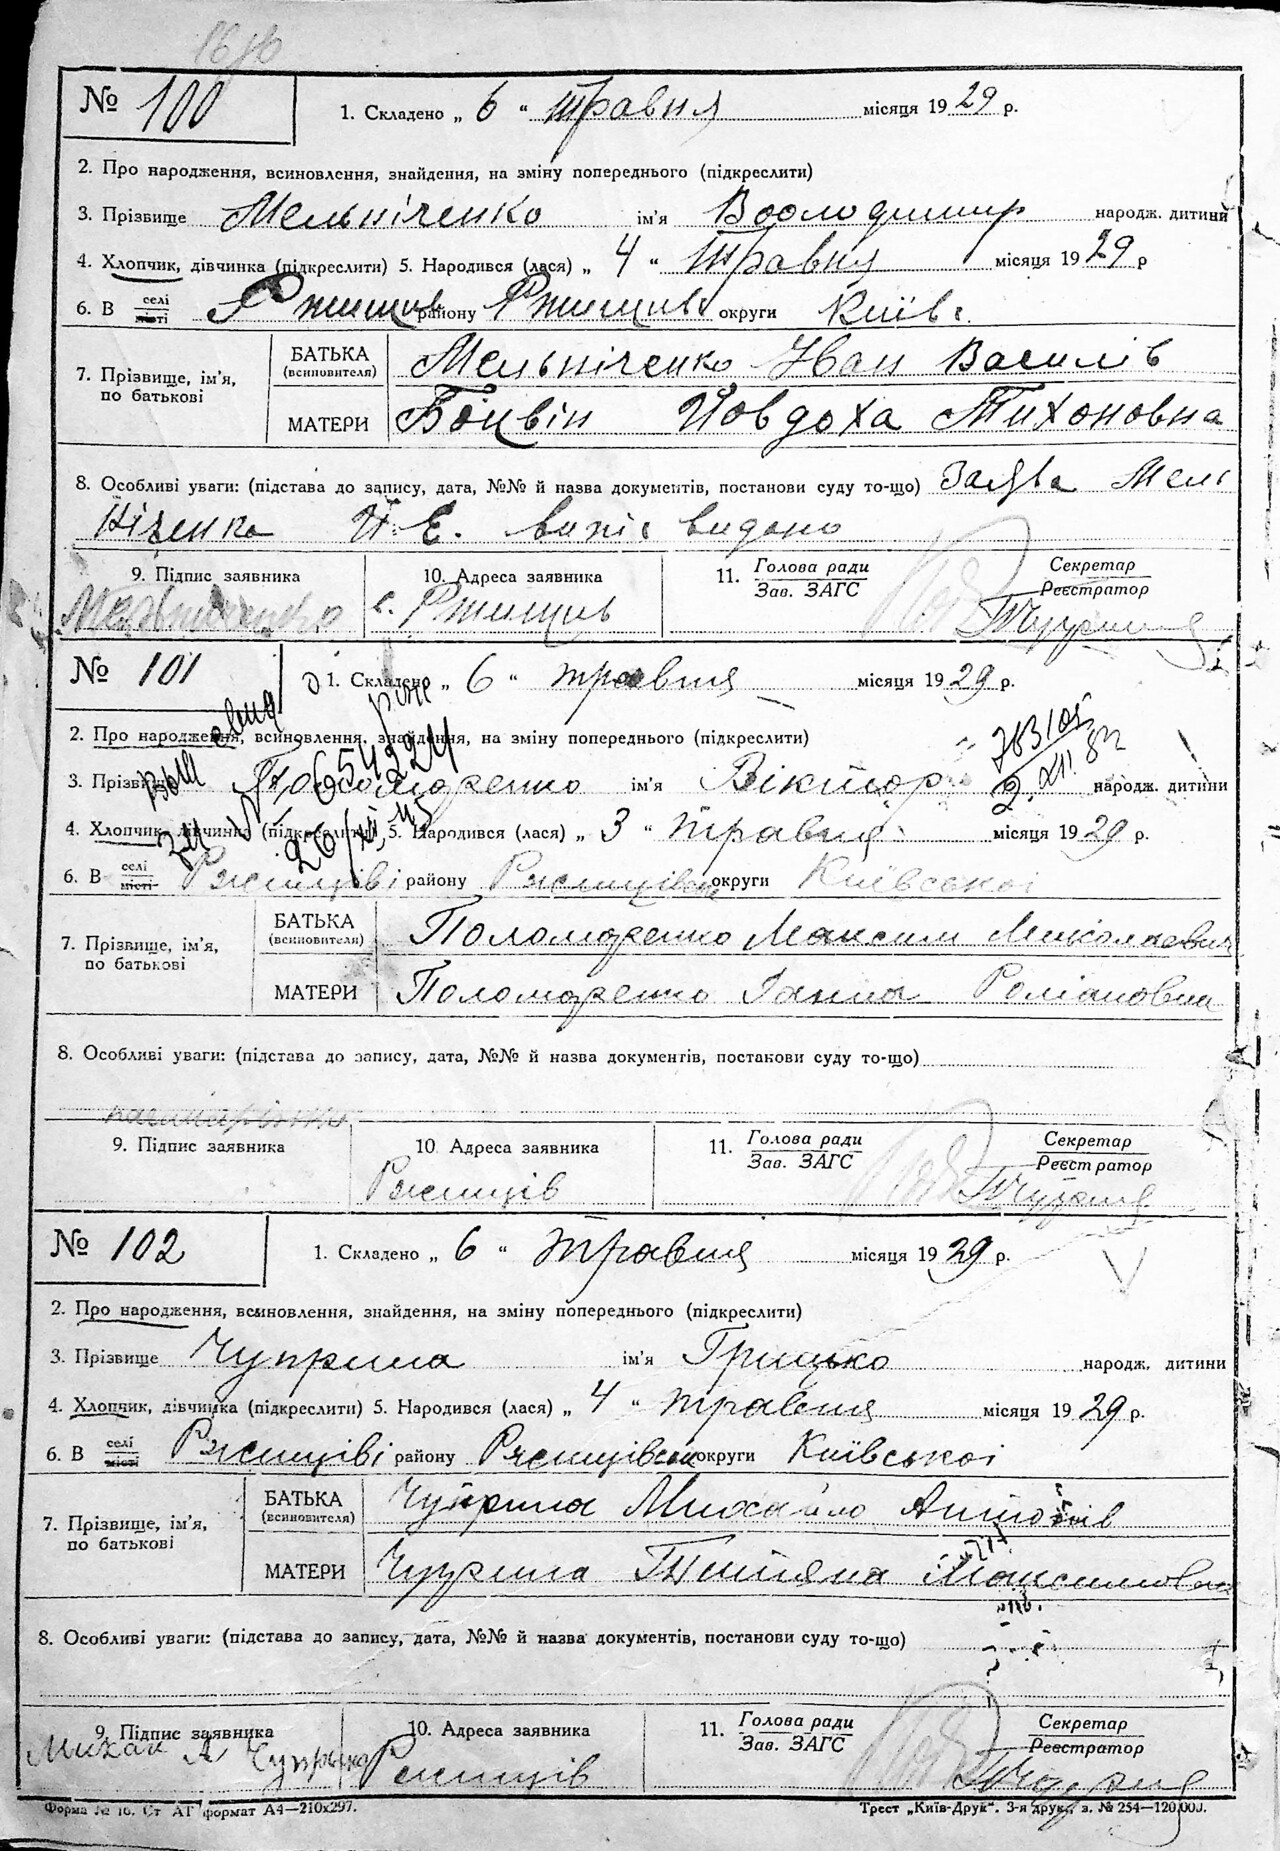 № 100
1. Складено „ 6 “ травня місяця 1929 р.
2. Про народження, всиновлення, знайдення, на зміну попереднього (підкреслити)
3. Прізвище Мельніченко ім’я Воолодимир народж. дитини
4. Хлопчик, дівчинка (підкреслити) 5. Народився (лася) „ 4 “ Травня місяця 1929 р
6. В селі місті Ржищів району Ржищів округи Київс.
7. Прізвище, ім’я, по батькові
БАТЬКА (всиновителя) Мельніченко Іван Василів
МАТЕРИ Боцвін Йовдоха Тихоновна
8. Особливі уваги: (підстава до запису, дата, №№ й назва документів, постанови суду то-що) Заява Мель
ніченка Й. Е. випіс видано
9. Підпис заявника 10. Адреса заявника 11. Голова ради Зав. ЗАГС Секретар Реєстратор
Мельниченко с. Ржищів
№ 101
1. Складено „ 6 “ травня місяця 1929 р.
2. Про народження, всиновлення, знайдення, на зміну попереднього (підкреслити)
3. Прізвище ім’я Віктор народж. дитини
4. Хлопчик, дівчинка (підкреслити) 5. Народився (лася) „ 3 “ травня місяця 1929 р.
6. В селі місті Ржищіві району Ржищівськ округи Київської
7. Прізвище, ім’я, по батькові
БАТЬКА (всиновителя) Поломаренко Максим Миколаевич
МАТЕРИ Поломаренко Ганна Романовна
8. Особливі уваги: (підстава до запису, дата, №№ й назва документів, постанови суду то-що)
9. Підпис заявника 10. Адреса заявника 11. Голова ради Зав. ЗАГС Секретар Реєстратор
Ржищів
№ 102
1. Складено „ 6 “ травня місяця 1929 р.
2. Про народження, всиновлення, знайдення, на зміну попереднього (підкреслити)
3. Прізвище Чуприна ім’я Грицько народж. дитини
4. Хлопчик, дівчинка (підкреслити) 5. Народився (лася) „ 4 “ травня місяця 1929 р.
6. В селі місті Ржищіві району Ржищівськ округи Київської
7. Прізвище, ім’я, по батькові
БАТЬКА (всиновителя) Чуприна Михайло Антонів
МАТЕРИ Чуприна Титяна Максимовна
8. Особливі уваги: (підстава до запису, дата, №№ й назва документів, постанови суду то-що)
9. Підпис заявника 10. Адреса заявника 11. Голова ради Зав. ЗАГС Секретар Реєстратор
Михай А Чуприна Ржищів
Форма № 16. Ст АГ формат А4—210х297. Трест „Київ-Друк“. 3-я друк., з. № 254—120.000.